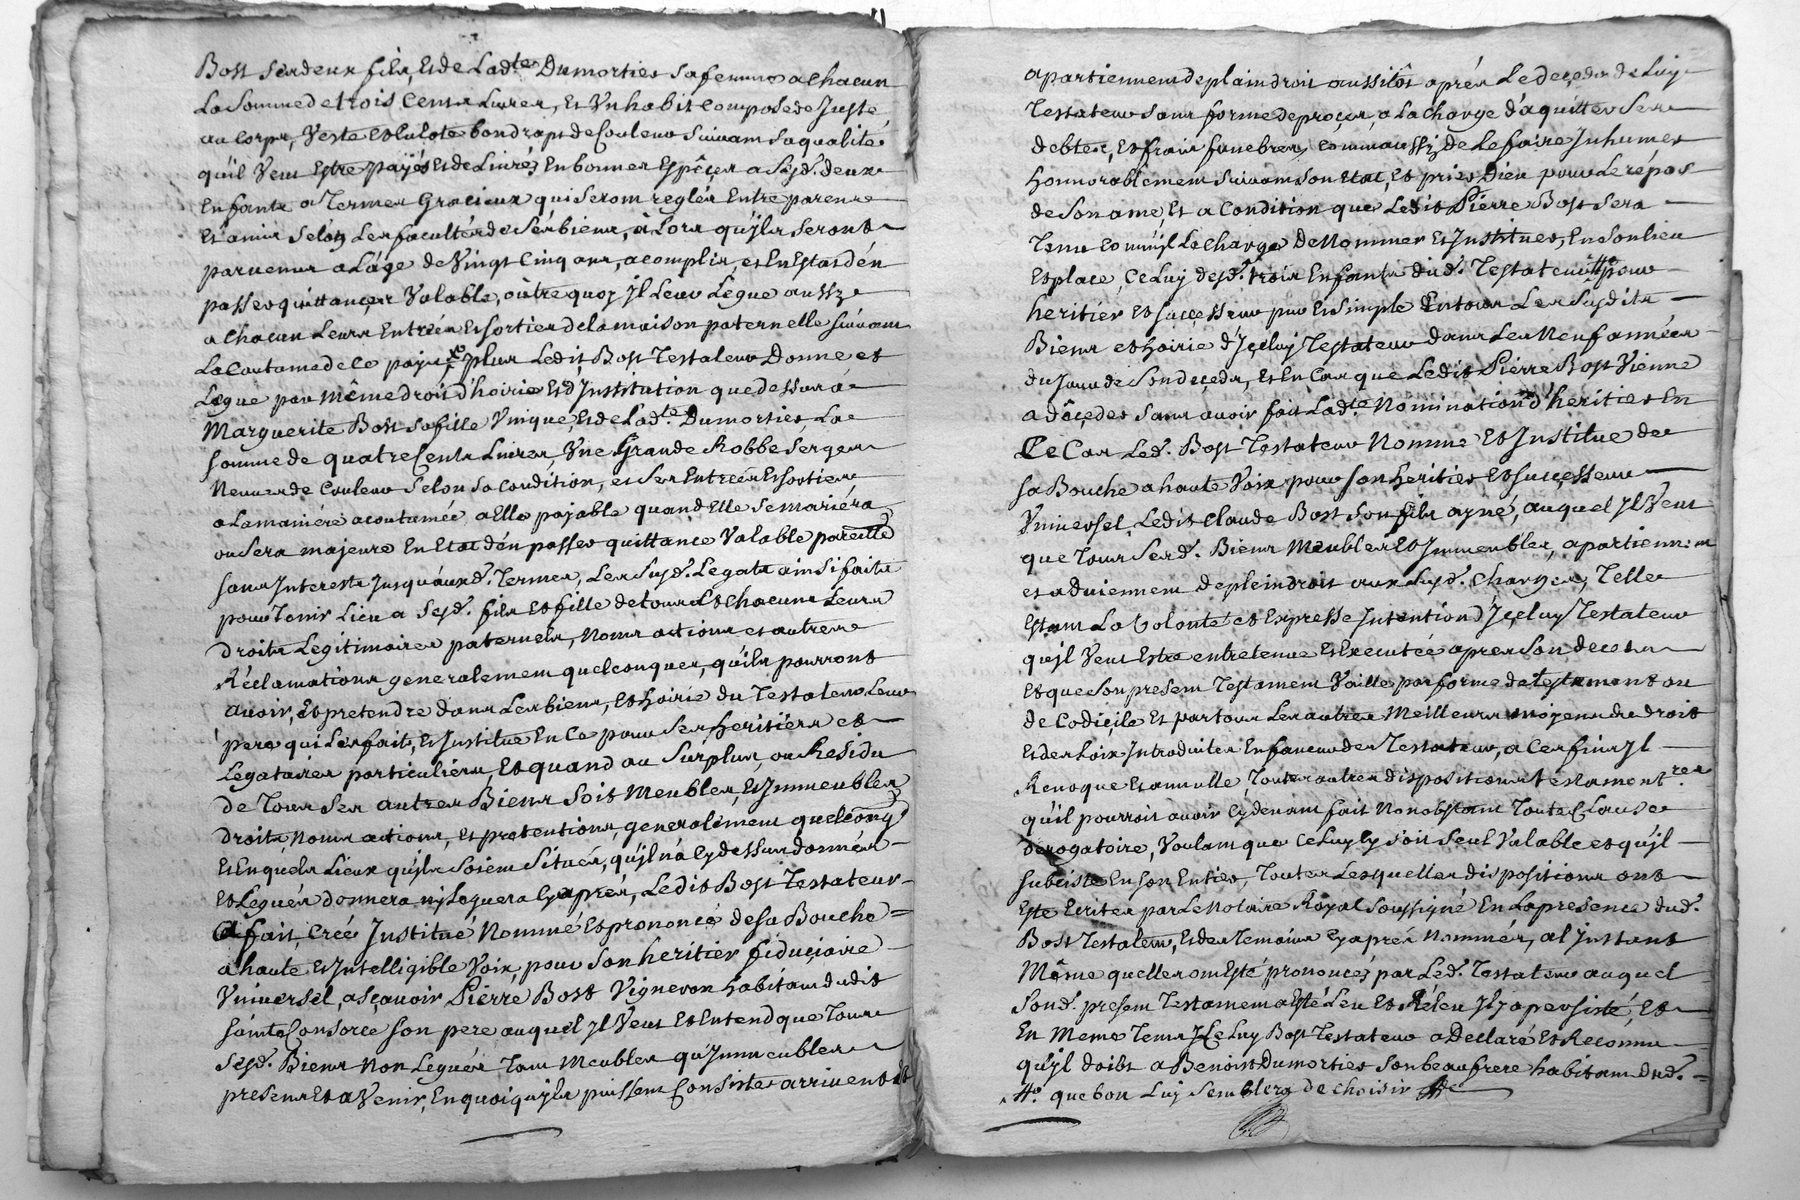 Bost ses deux fils, Et de Ladte Dumortier sa femme a Chacun
La Somme de trois Cents Livres, Et Un habit Composé de Juste
au Corps, Veste et Culote bon draps de Couleur suivant sa qualité
quil Veut Estre payés Et de Livrés En bonnes Espêces a Sesd. deux
Enfants a Termes Gracieux qui seront reglés Entre parens
Et amis selon Les facultés de Ses biens, a Lors quÿls seront
parvenus a Lâge de Vingt Cinq ans, acomplis, et En Estat dén
passer quittances Valable, oûtre quoy Jl Leur Lêgue aussy
a Chacun Leurs Entrées Et sorties de la maison paternelle suivant
La Coutume de ce païs, plus Ledit Bost Testateur Donne et
Legue par même droit d'hoirie Et d'Institution que dessus a
Marguerite Bost sa fille Unique, Et de Ladte Dumortier, La
somme de quatre Cents Livres, Une Grande Robbe serge
Neuve de Couleur Selon sa Condition, et Ses Entrées Et sorties
a La maniére acoutumée a Elle payable quand Elle Se mariéra
ou Sera majeure En Etat dén passer quittance Valable pareille
sans Jnterests Jusquâuxd. Termes, Les Susd. Legats ainsi faits
pour Tenir Lieu a Sesd. fils Et fille de tous Et Chacuns Leurs
droits Legitimaires paternels, noms actions et autres
Réclamations generalement quelconques, quils pourront
avoir, Et pretendre dans Les biens, Et hoirie du Testateur Leur
pere qui Les fait, Et Jnstitue En Ce pour Ses heritiérs et
Legataires particuliérs, Et quand au Surplus, ou Residu
de Tous Ses autres Biens soit Meubles, Et Jmmeubles
droits noms actions, Et pretentions generalement quelconq
Et En quels Lieux quÿls soient Situés, qu'jl n'a Cy dessus donnés
Et Legués donnera nj Leguera Cy aprés, Ledit Bost Testateur
A fait, Créé Jnstitué Nommé Et prononcé de Sa Bouche
a haute Et Jntelligible Voix, pour Son heritier fiduçiaire
Universel, asçavoir Pierre Bost Vigneron habitant dudit
sainte Consorce son pere, auquel Jl Veut Et Entend que Tous
Sesd. Biens Non Legués Tant Meubles qu'Jmmeubles
presens Et a Venir, En quoi quÿls puissent Consister arrivent et
apartiennent de plain droit aussitôt aprés Le deçeds de Luy
Testateur sans forme de proçés, a La Charge d'aquitter Ses
debtes, Et frais funebres, comm'aussi de Le faire Jnhumer
honnorablement suivant Son Etat, Et prier Dieu pour Le répos
de Son ame, Et a Condition que Ledit Pierre Bost Sera
Tenu Comm'jl Le Charge De Nommer Et Jnstituer, En Son lieu
Et place, Celuy desd. trois Enfants dud. Testateur # pour
heritiér Et successeur pur Et Simple En tous Les Susdits
Biens et hoirie d'Jçeluy Testateur dans Les Neuf années
du Jour de Son deçeds, Et En Cas que Ledit Pierre Bost Vienne
a dêçeder sans avoir fait Ladte Nomination d'héritier En
Ce Cas Led. Bost Testateur Nomme Et Jnstitue de
sa Bouche a haute Voix pour Son heritier Et Successeur
Universel, Ledit Claude Bost Son fils ayné, auquel Jl Veut
que Tous Sesd. Biens Meubles Et Jmmeubles, apartiennent
et aduiennent de plein droit aux Susd. Charges, Telle
Estant La Volonté et Expresse Jntention d'Jçeluy Testateur
qu'jl Veut Estre entretenue Et Executée apres Son deces
Et que Son present Testament Vaille par forme de testament ou
de Codiçile Et par tous Les autres Meilleurs moyens de droit
Et des Loix Jntroduites En faveur des Testateurs, a Ces fins Jl
Revoque Et annulle, Toutes autres dispositions testamentres
qu'il pourroit avoir Cydevant fait Nonobstant Toute Clause
derogatoire, Voulant que Celuy Cy soit Seul Valable et qu'jl
subsiste En Son Entier, Toutes Lesquelles dispositions ont
Esté Ecrites par Le Notaire Royal Soussigné En La presence dud.
Bost Testateur, Et des Temoins Cy aprés Nommés, a l'Jnstant
Même quelles ont Esté prononcés par Led. Testateur auquel
Sond. present Testament a Esté Leu Et Réleu Jl y a persisté, Et
En Meme Tems Jcelluy Bost Testateur a Declaré Et Reconnu
qu'jl doibt a Benoist Dumortier Son beau frere habitant dud.
#. que bon Luy Semblera de Choisir #